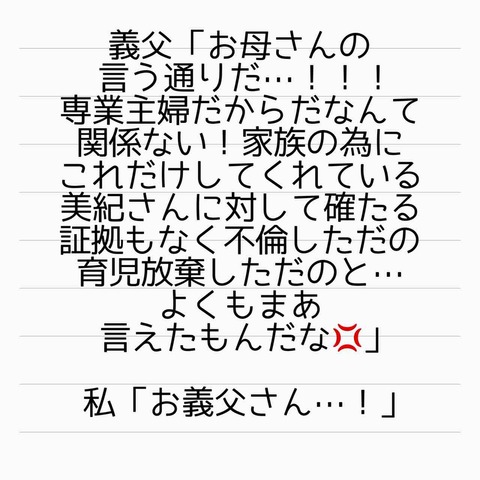 義父「お母さんの
言う通りだ…！！！
専業主婦だからだなんて
関係ない！家族の為に
これだけしてくれている
美紀さんに対して確たる
証拠もなく不倫しただの
育児放棄しただのと…
よくもまあ
言えたもんだな💢」
私「お義父さん…！」